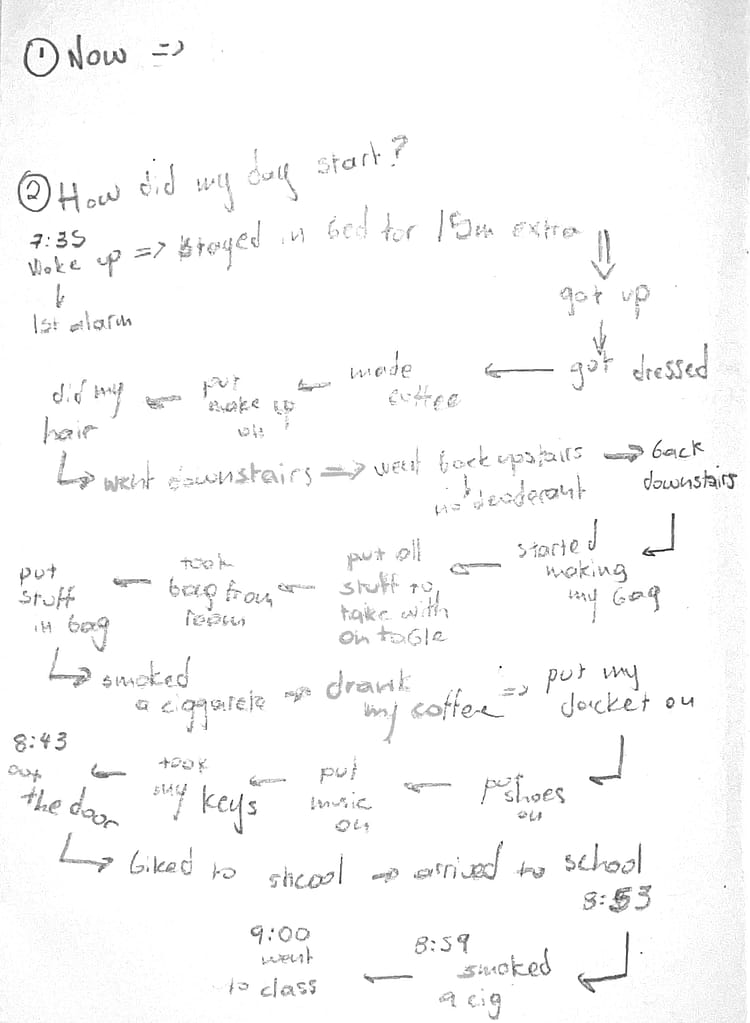 ① Now =>
② How did my day start?
7:35
Woke up => stayed in bed for 15m extra
1st alarm
got up
got dressed
made
coffee
put
make up
on
did my
hair
went downstairs => went back upstairs
no deoderant
back
downstairs
started
making
my bag
put all
stuff to
take with
on table
took
bag from
room
put
stuff
in bag
smoked
a ciggarete
drank
my coffee =>
put my
jacket on
put shoes
on
put
music
on
took
my keys
8:43
out
the door
biked to shcool
arrived to school
8:53
8:59
smoked
a cig
9:00
went
to class